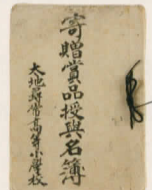 寄贈賞品授與名簿
大地尋常高等小學校